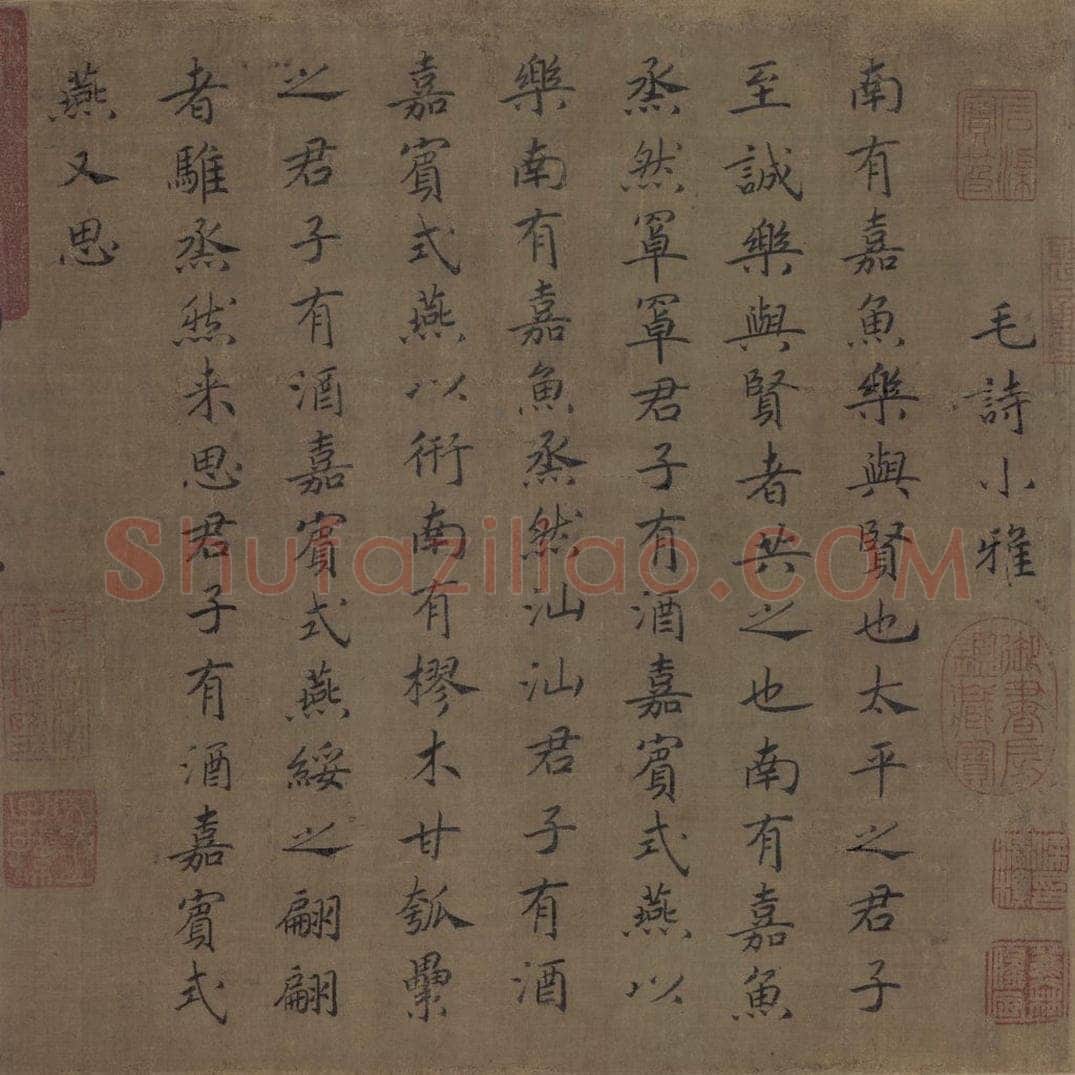 毛詩小雅
南有嘉魚樂與賢也太平之君子
至誠樂與賢者共之也南有嘉魚
烝然罩罩君子有酒嘉賓式燕以
樂南有嘉魚烝然汕汕君子有酒
嘉賓式燕以衎南有樛木甘瓠纍
之君子有酒嘉賓式燕綏之翩翩
者騅烝然来思君子有酒嘉賓式
燕又思
御書房鑑藏寶
Shufaziliao.COM